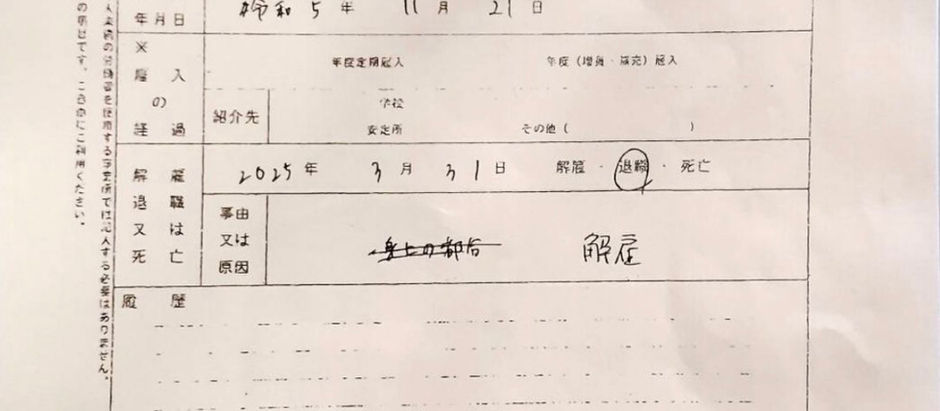 年月日 令和5年 11月 21日
※
雇入の経過
年度定期雇入 年度(増員・補充)雇入
紹介先
学校
安定所 その他( )
解雇退職又は死亡
2025年 3月 31日 解雇・退職・死亡
事由又は原因
身上の都合 解雇
履歴
入業務の労働者を使用する事業所では記入する必要はありません。
の項目です。ご自由にご利用ください。